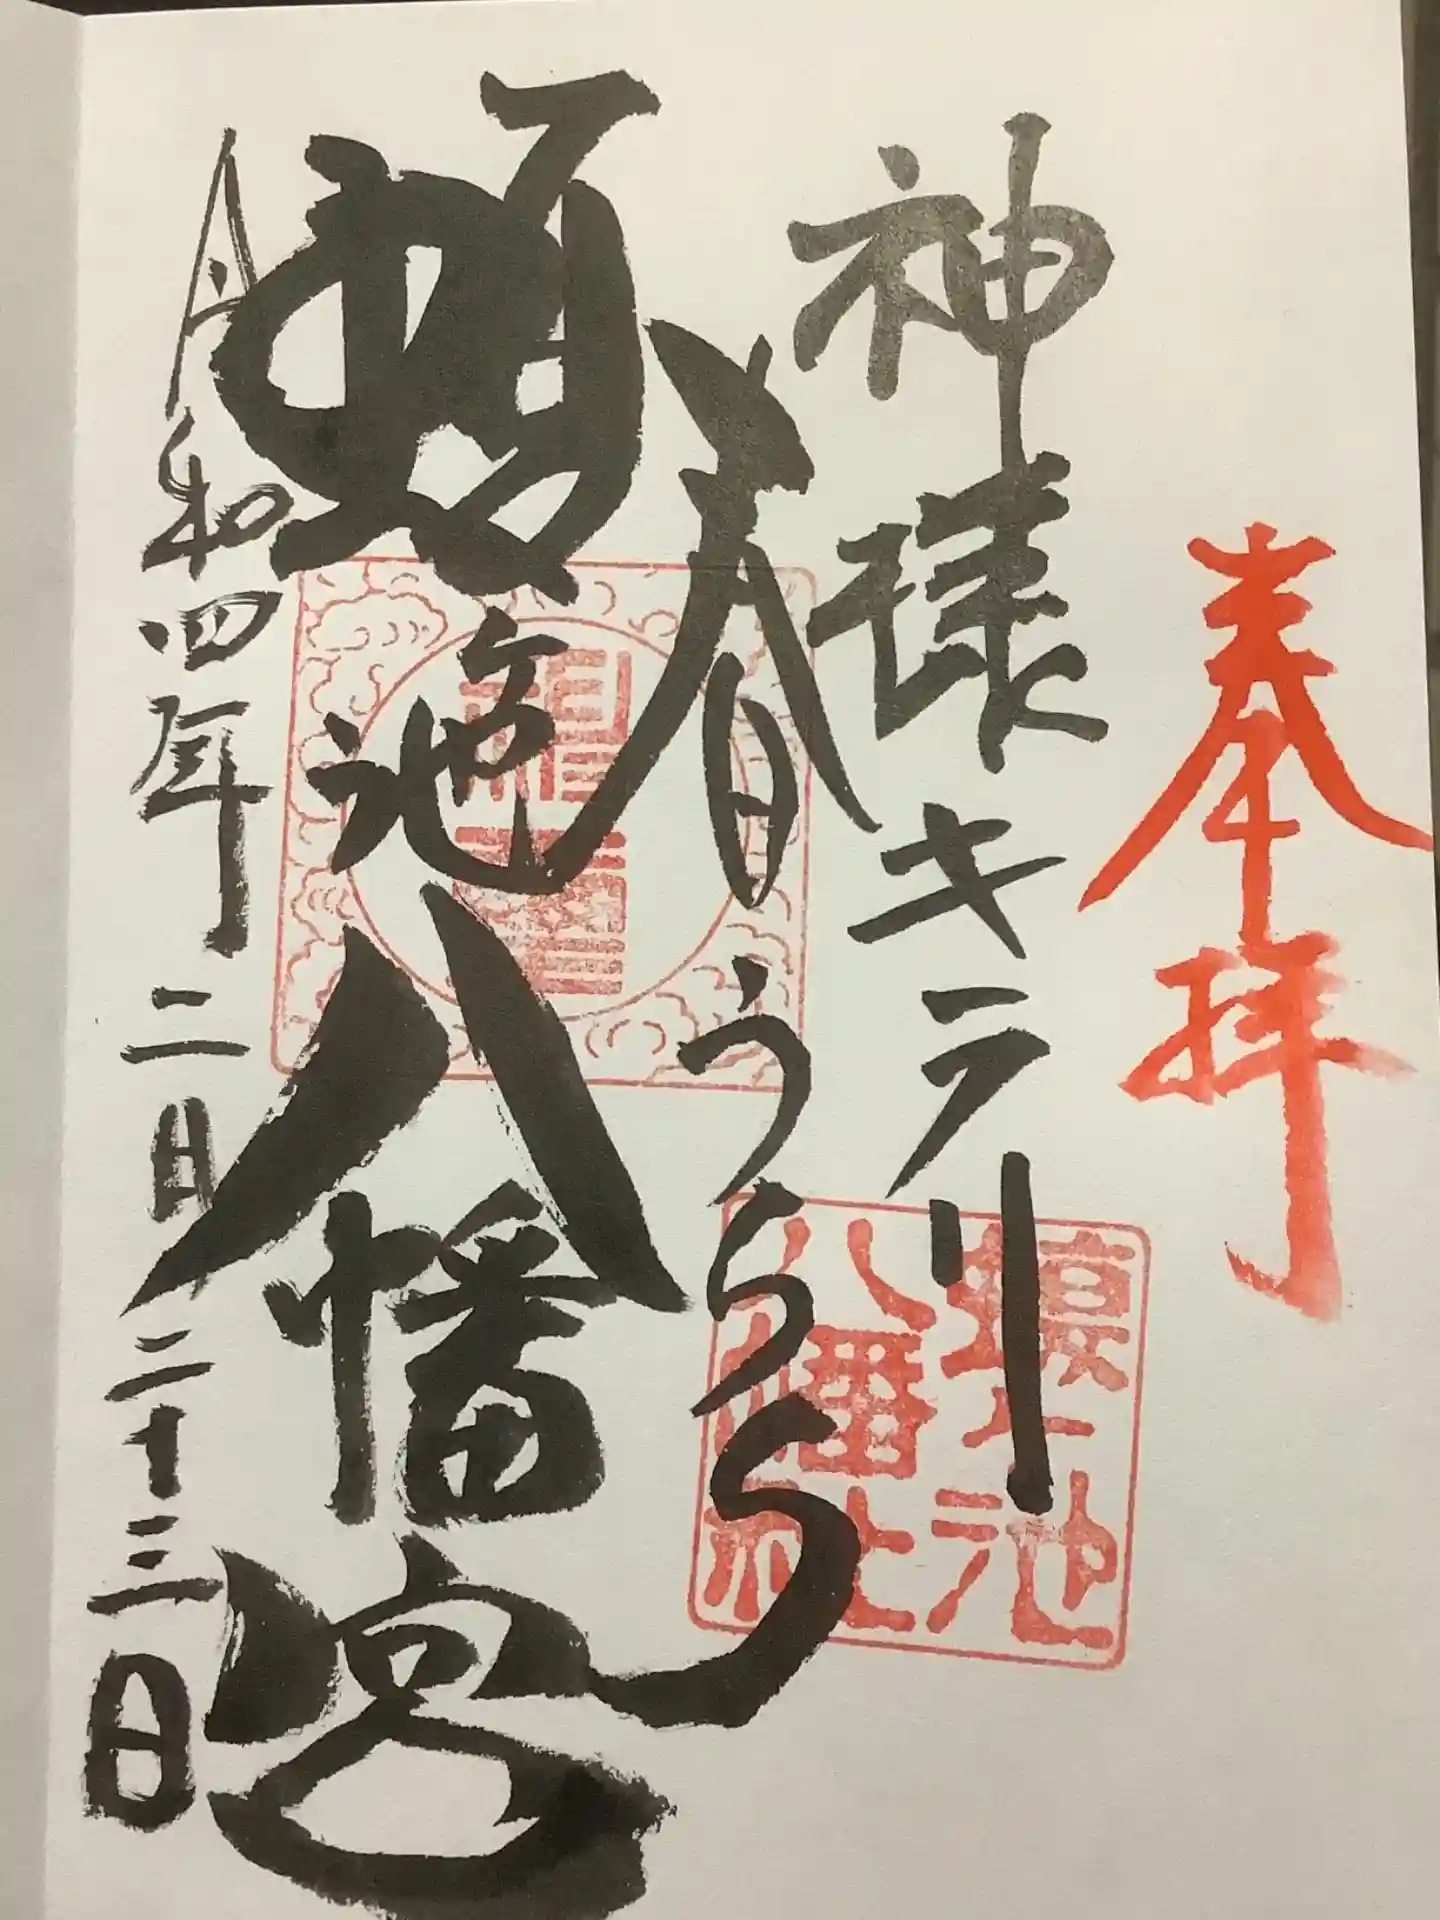 奉拝
神様キラリ
春うらら
ヶ池八幡宮
令和四年二月二十三日
ヶ池
八幡社